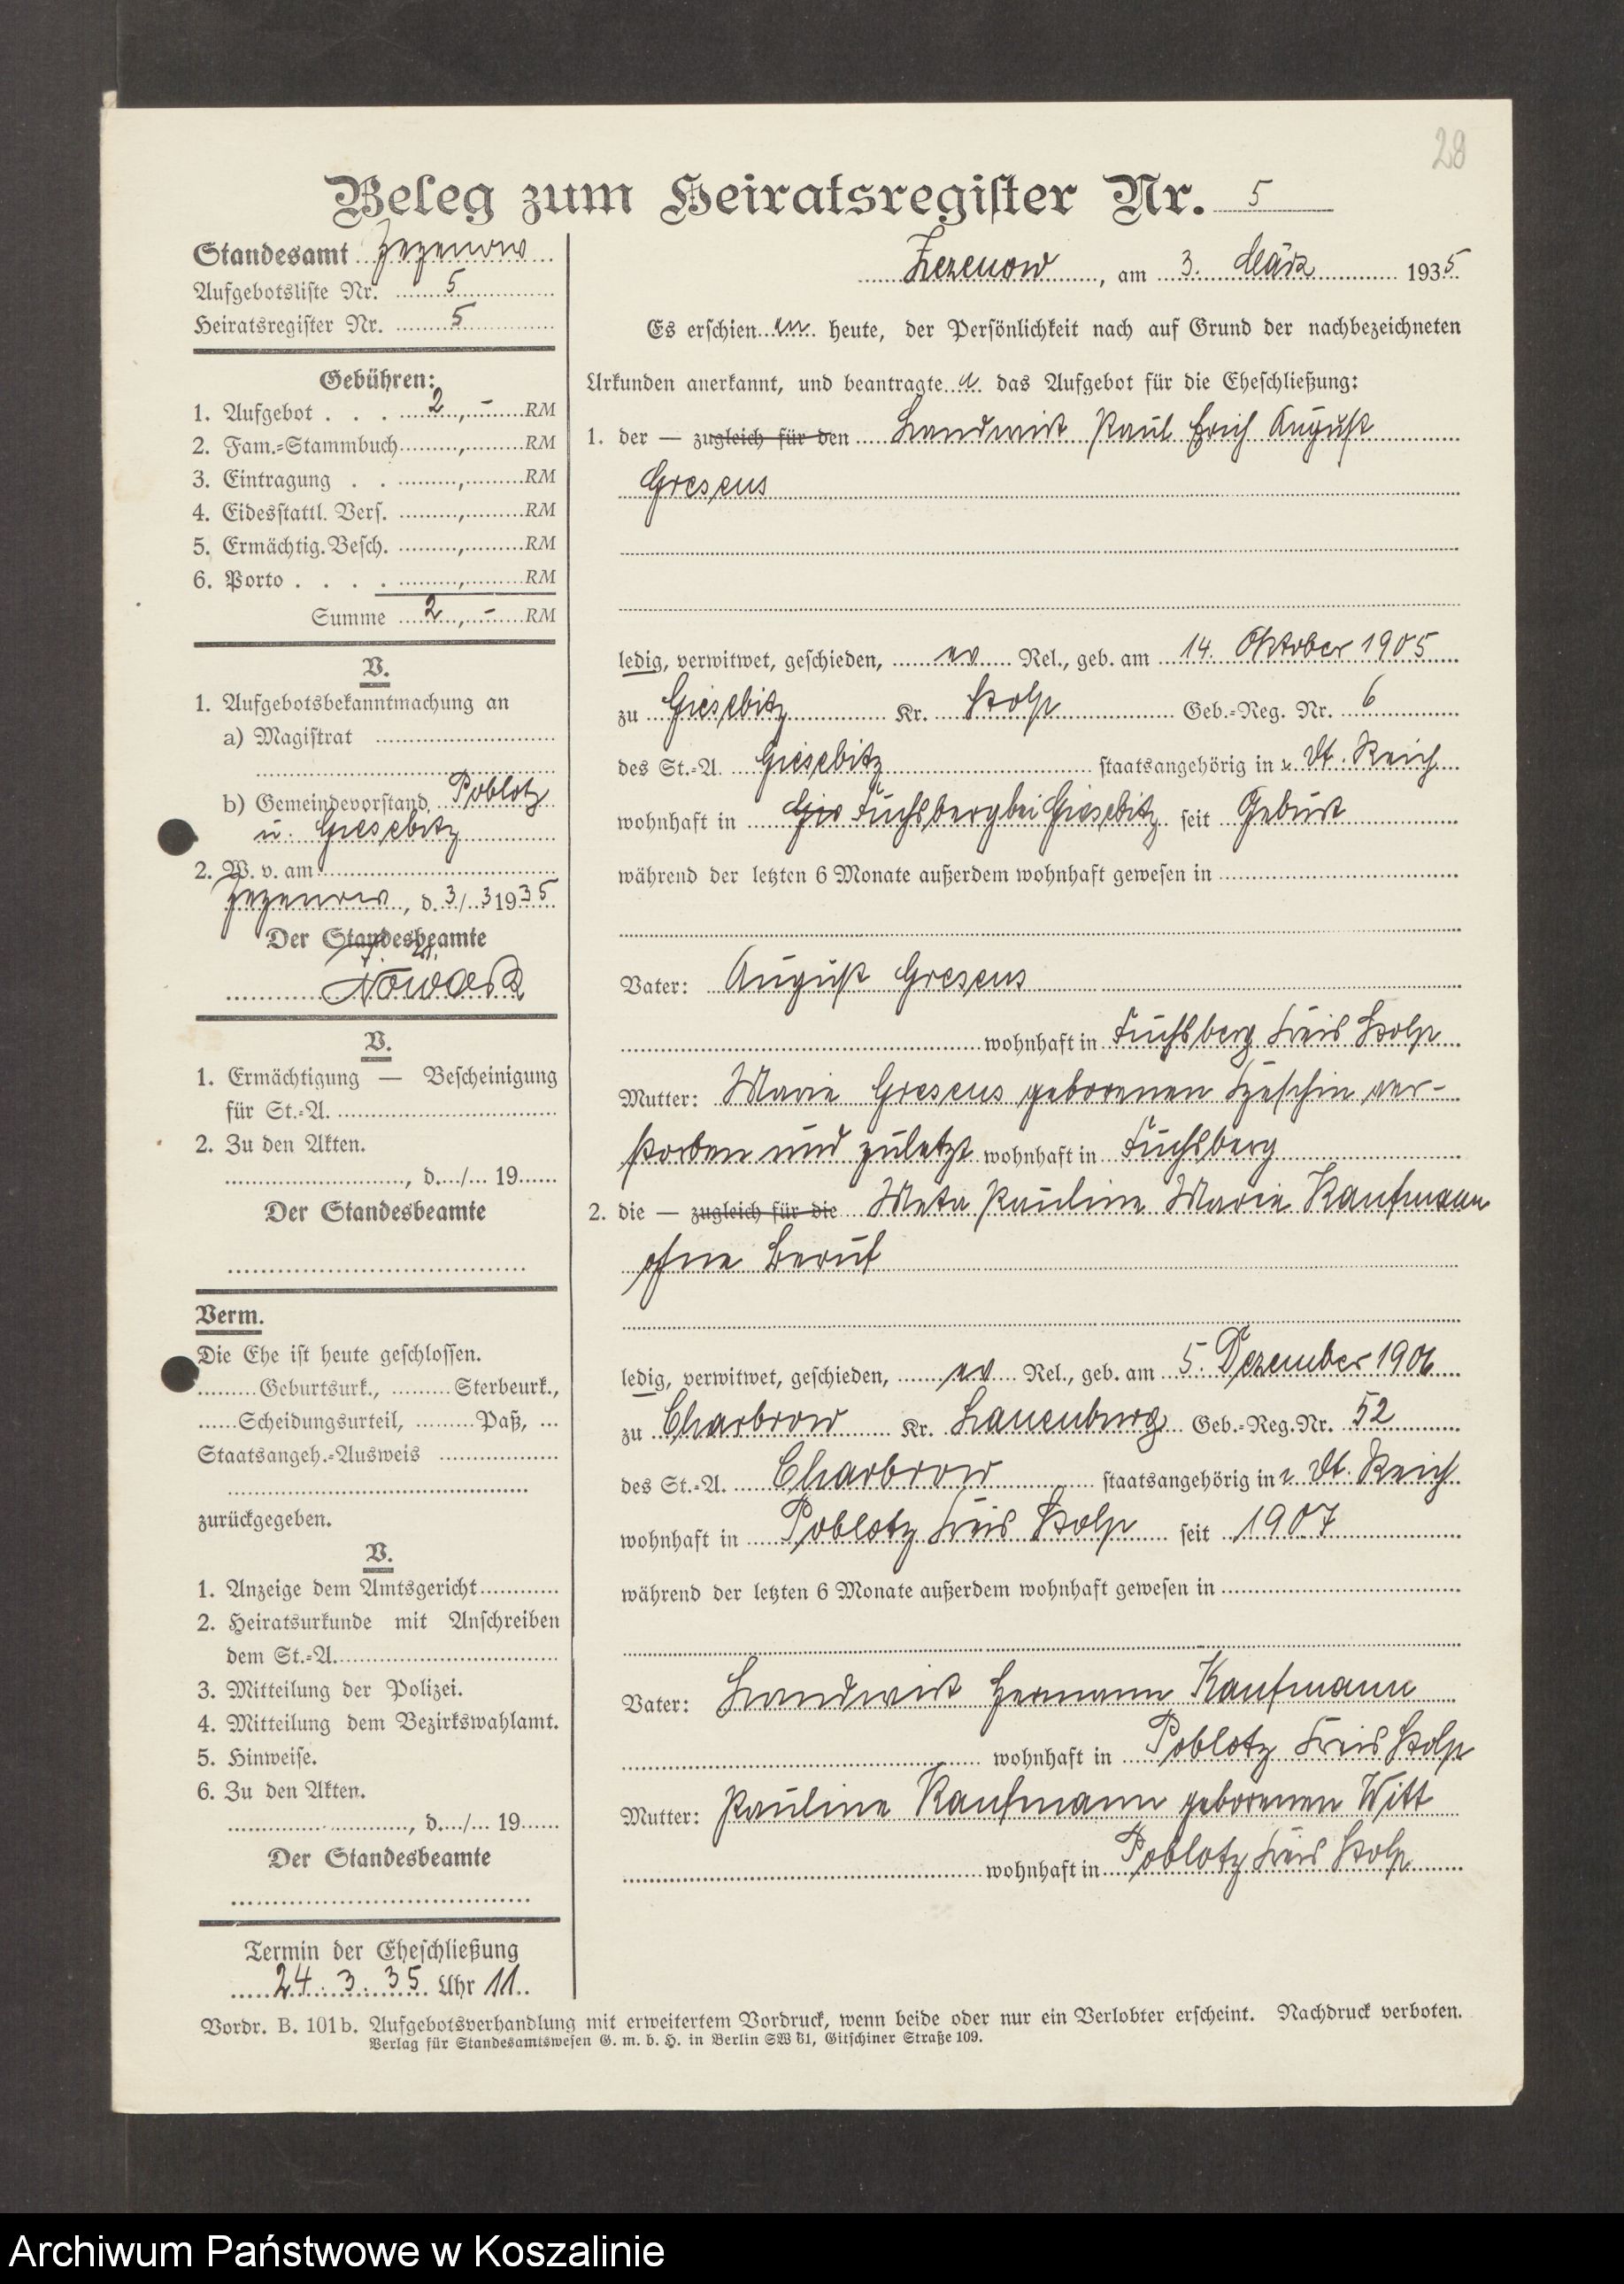 28
Beleg zum Heiratsregister Nr. 5
Standesamt Zezenow
Aufgebotsliste Nr. 5
Heiratsregister Nr. 5
Gebühren:
1. Aufgebot . . . 2,- RM
2. Fam.-Stammbuch , RM
3. Eintragung . . , RM
4. Eidesstattl. Vers. , RM
5. Ermächtig. Besch. , RM
6. Porto . . . . , RM
Summe 2,- RM
V.
1. Aufgebotsbekanntmachung an
a) Magistrat
b) Gemeindevorstand Poblotz
u. Giesebitz
2. W. v. am
Zezenow, d. 3/3 1935
Der Standesbeamte
Nowack
V.
1. Ermächtigung — Bescheinigung
für St.-A.
2. Zu den Akten.
, d. / 19
Der Standesbeamte
Verm.
Die Ehe ist heute geschlossen.
Geburtsurk., Sterbeurk.,
Scheidungsurteil, Paß,
Staatsangeh.-Ausweis
zurückgegeben.
V.
1. Anzeige dem Amtsgericht
2. Heiratsurkunde mit Anschreiben
dem St.-A.
3. Mitteilung der Polizei.
4. Mitteilung dem Bezirkswahlamt.
5. Hinweise.
6. Zu den Akten.
, d. / 19
Der Standesbeamte
Termin der Eheschließung
24. 3. 35 Uhr 11
Zezenow, am 3. März 1935
Es erschien en heute, der Persönlichkeit nach auf Grund der nachbezeichneten
Urkunden anerkannt, und beantragte n das Aufgebot für die Eheschließung:
1. der — zugleich für den Landwirt Paul Erich August
Gresens
ledig, verwitwet, geschieden, ev Rel., geb. am 14. Oktober 1905
zu Giesebitz Kr. Stolp Geb.-Reg. Nr. 6
des St.-A. Giesebitz staatsangehörig in Dt. Reich
wohnhaft in Gie Fuchsberg bei Giesebitz seit Geburt
während der letzten 6 Monate außerdem wohnhaft gewesen in
Vater: August Gresens
wohnhaft in Fuchsberg Kreis Stolp
Mutter: Marie Gresens geborenen ver-
storben und zuletzt wohnhaft in Fuchsberg
2. die — zugleich für die Meta Pauline Marie Kaufmann
ohne Beruf
ledig, verwitwet, geschieden, ev Rel., geb. am 5. Dezember 1906
zu Charbrow Kr. Lauenburg Geb.-Reg. Nr. 52
des St.-A. Charbrow staatsangehörig in Dt. Reich
wohnhaft in Poblotz Kreis Stolp seit 1907
während der letzten 6 Monate außerdem wohnhaft gewesen in
Vater: Landwirt Hermann Kaufmann
wohnhaft in Poblotz Kreis Stolp
Mutter: Pauline Kaufmann geborenen Witt
wohnhaft in Poblotz Kreis Stolp
Vordr. B. 101b. Aufgebotsverhandlung mit erweitertem Vordruck, wenn beide oder nur ein Verlobter erscheint. Nachdruck verboten.
Verlag für Standesamtswesen G. m. b. H. in Berlin SW 61, Gitschiner Straße 109.
Archiwum Państwowe w Koszalinie